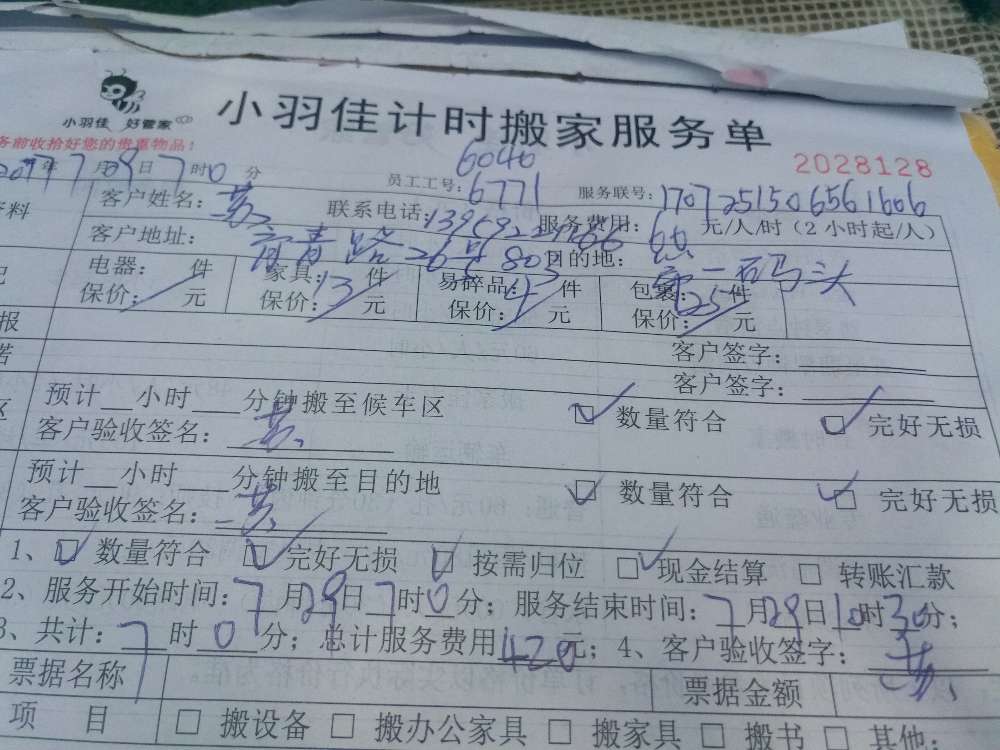 小羽佳 好管家
小羽佳计时搬家服务单
务前收拾好您的贵重物品！
2028128
年7月29日7时0分
6040
员工工号：6771
服务联号：1707251506561606
资料
客户姓名：黄
联系电话：
服务费用：60 元/人/时（2小时起/人）
客户地址：
路26号803
目的地：
第一码头
电器：件 家具：件 易碎品：件 包裹：件
保价：1元 保价：13元 保价：4元 保价：25元
报
客户签字：
客户签字：
预计__小时___分钟搬至候车区
数量符合 完好无损
客户验收签名：黄
预计__小时___分钟搬至目的地
数量符合 完好无损
客户验收签名：黄
1、数量符合 完好无损 按需归位 现金结算 转账汇款
2、服务开始时间：7月29日7时0分；服务结束时间：7月29日10时30分；
3、共计：7时0分；总计服务费用420元；4、客户验收签字：黄
票据名称 票据金额
项 目 搬设备 搬办公家具 搬家具 搬书 其他：